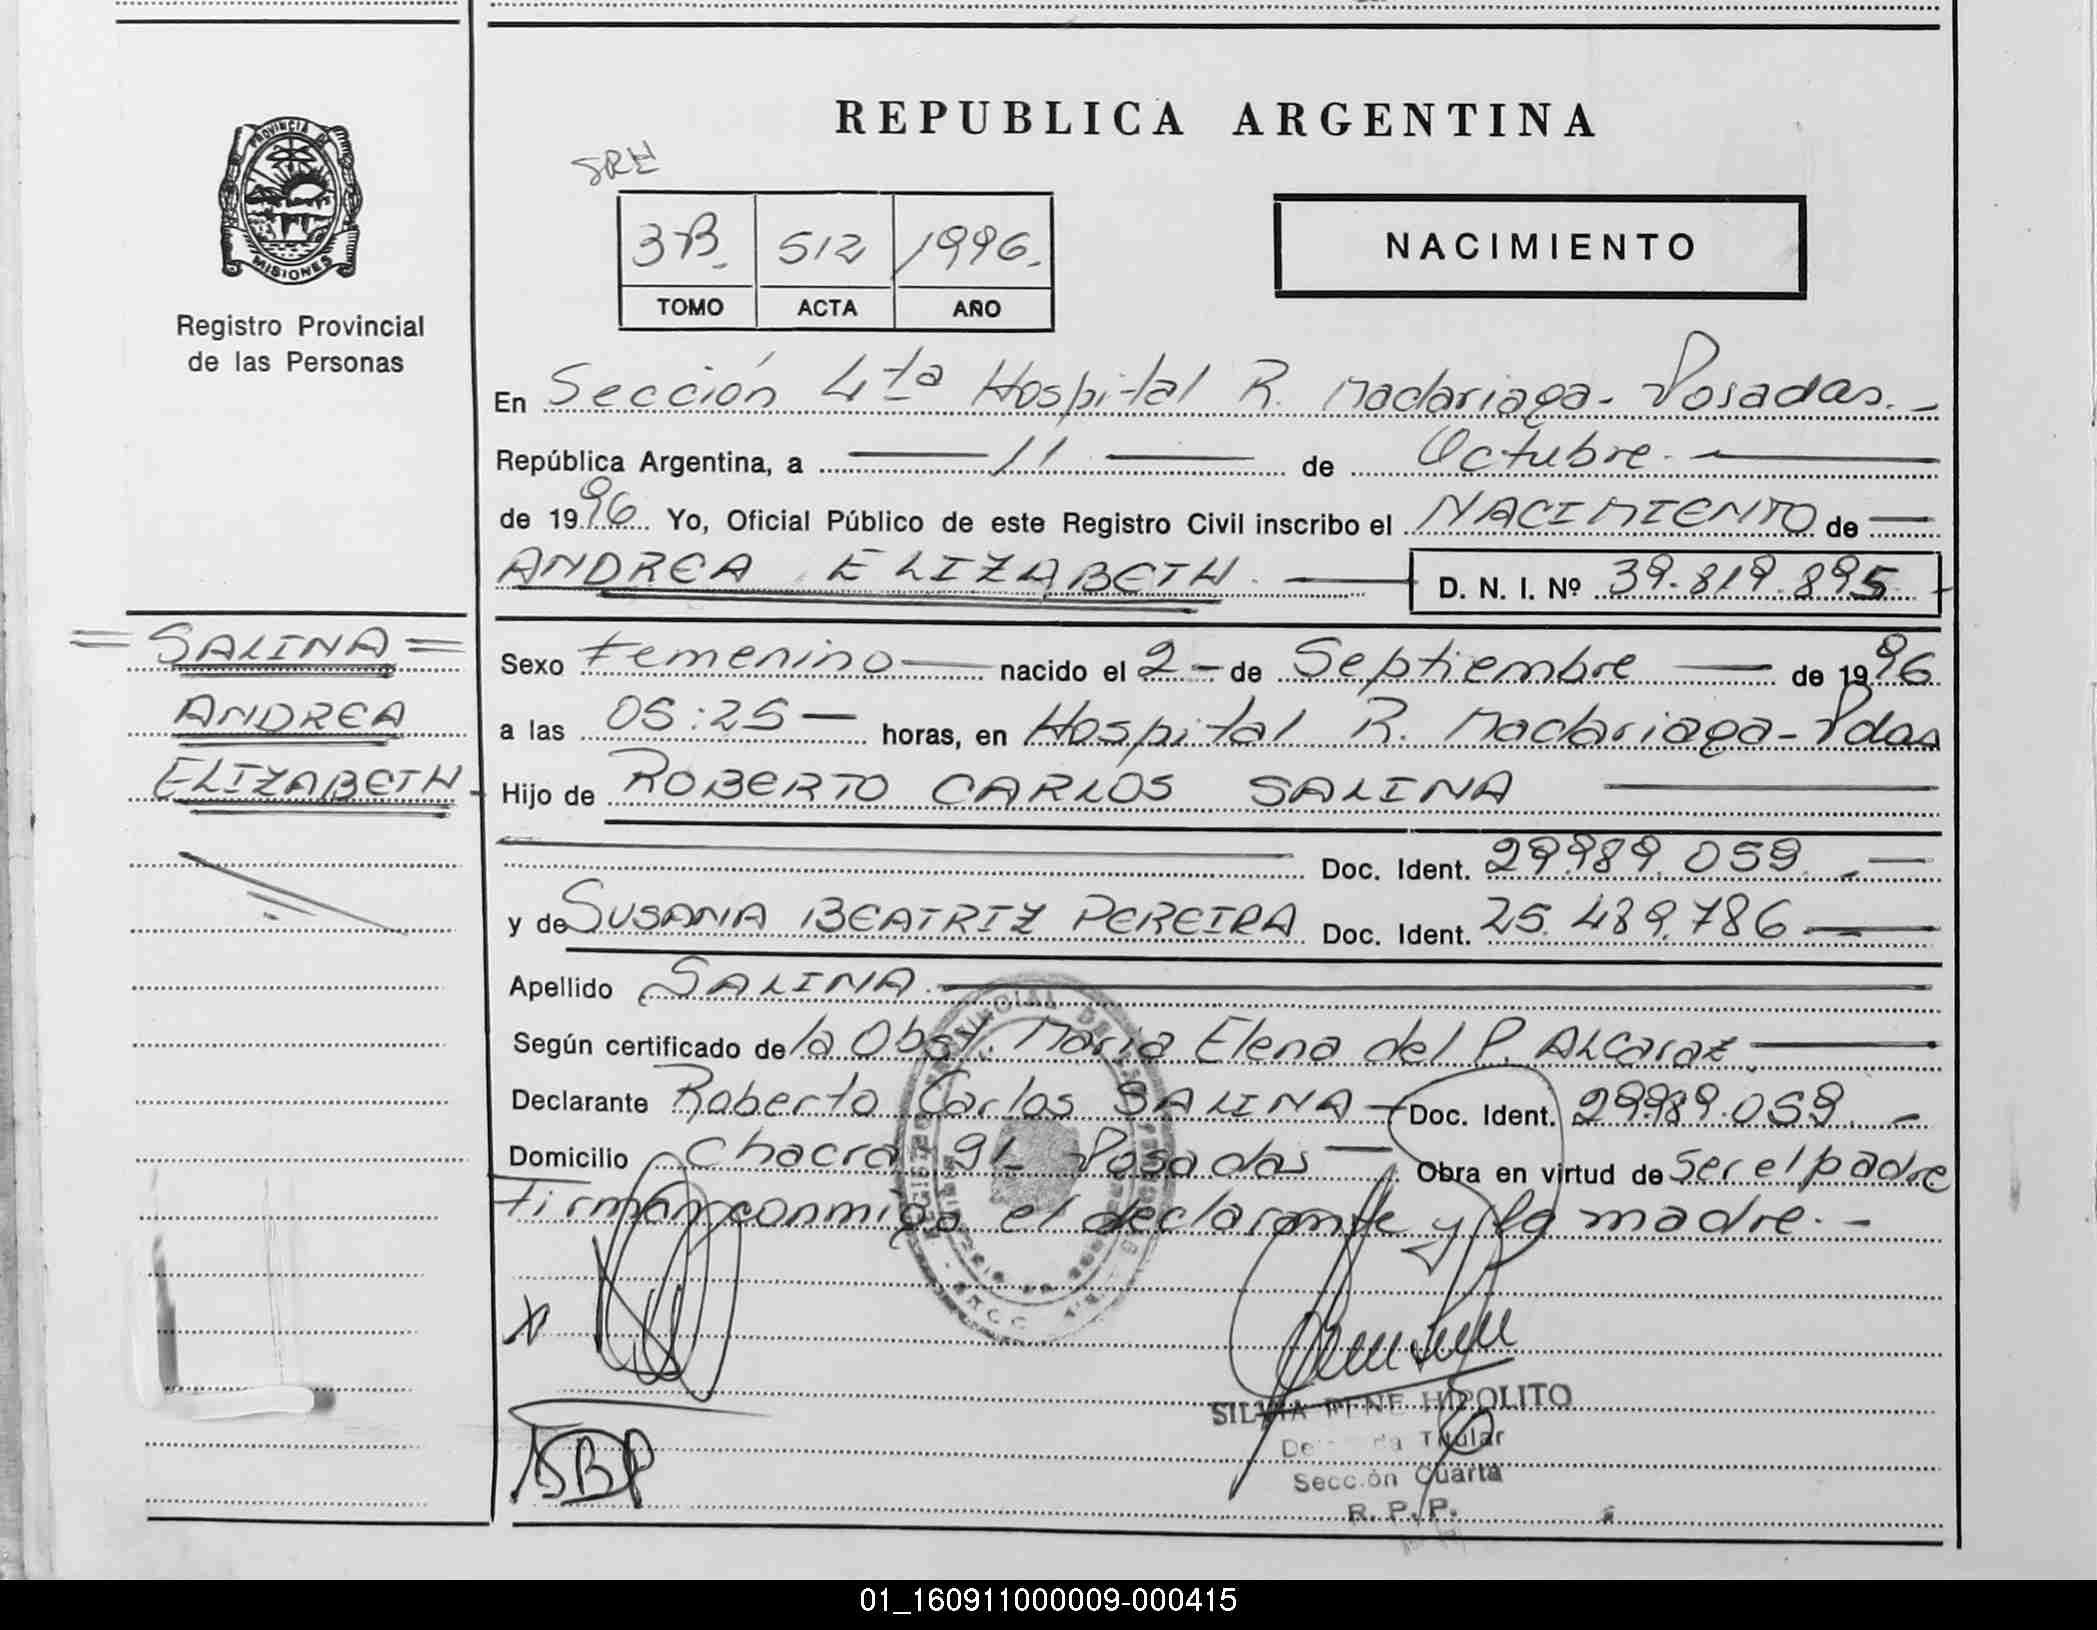 REPUBLICA ARGENTINA
PROVINCIA DE
MISIONES
Registro Provincial
de las Personas
3B. 512 1996.
TOMO ACTA AÑO
NACIMIENTO
En Sección 4ta Hospital R. Madariaga - Posadas. -
República Argentina, a 11 de Octubre.
de 1996 Yo, Oficial Público de este Registro Civil inscribo el NACIMIENTO de
ANDREA ELIZABETH. D. N. I. Nº 39.819.895
= SALINA =
ANDREA
ELIZABETH -
Sexo Femenino nacido el 2 - de Septiembre de 1996
a las 05:25 horas, en Hospital R. Madariaga - Pdas
Hijo de ROBERTO CARLOS SALINA
Doc. Ident. 29.989.059. -
y de SUSANA BEATRIZ PEREIRA Doc. Ident. 25.489.786
Apellido SALINA.
Según certificado de la Obst. Maria Elena del P. ALCaraz
Declarante Roberto Carlos SALINA - Doc. Ident. 29.989.059. -
Domicilio Chacra 91 Posadas Obra en virtud de Ser el padre
Firman conmigo el declarante y la madre. -
X
SBP
SILVIA RENE HIPOLITO
Titular
Sección Cuarta
R. P. P.
01_160911000009-000415